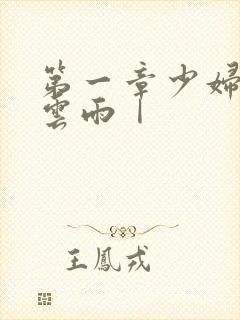 第一章少婦
雲雨|
王鳳戎